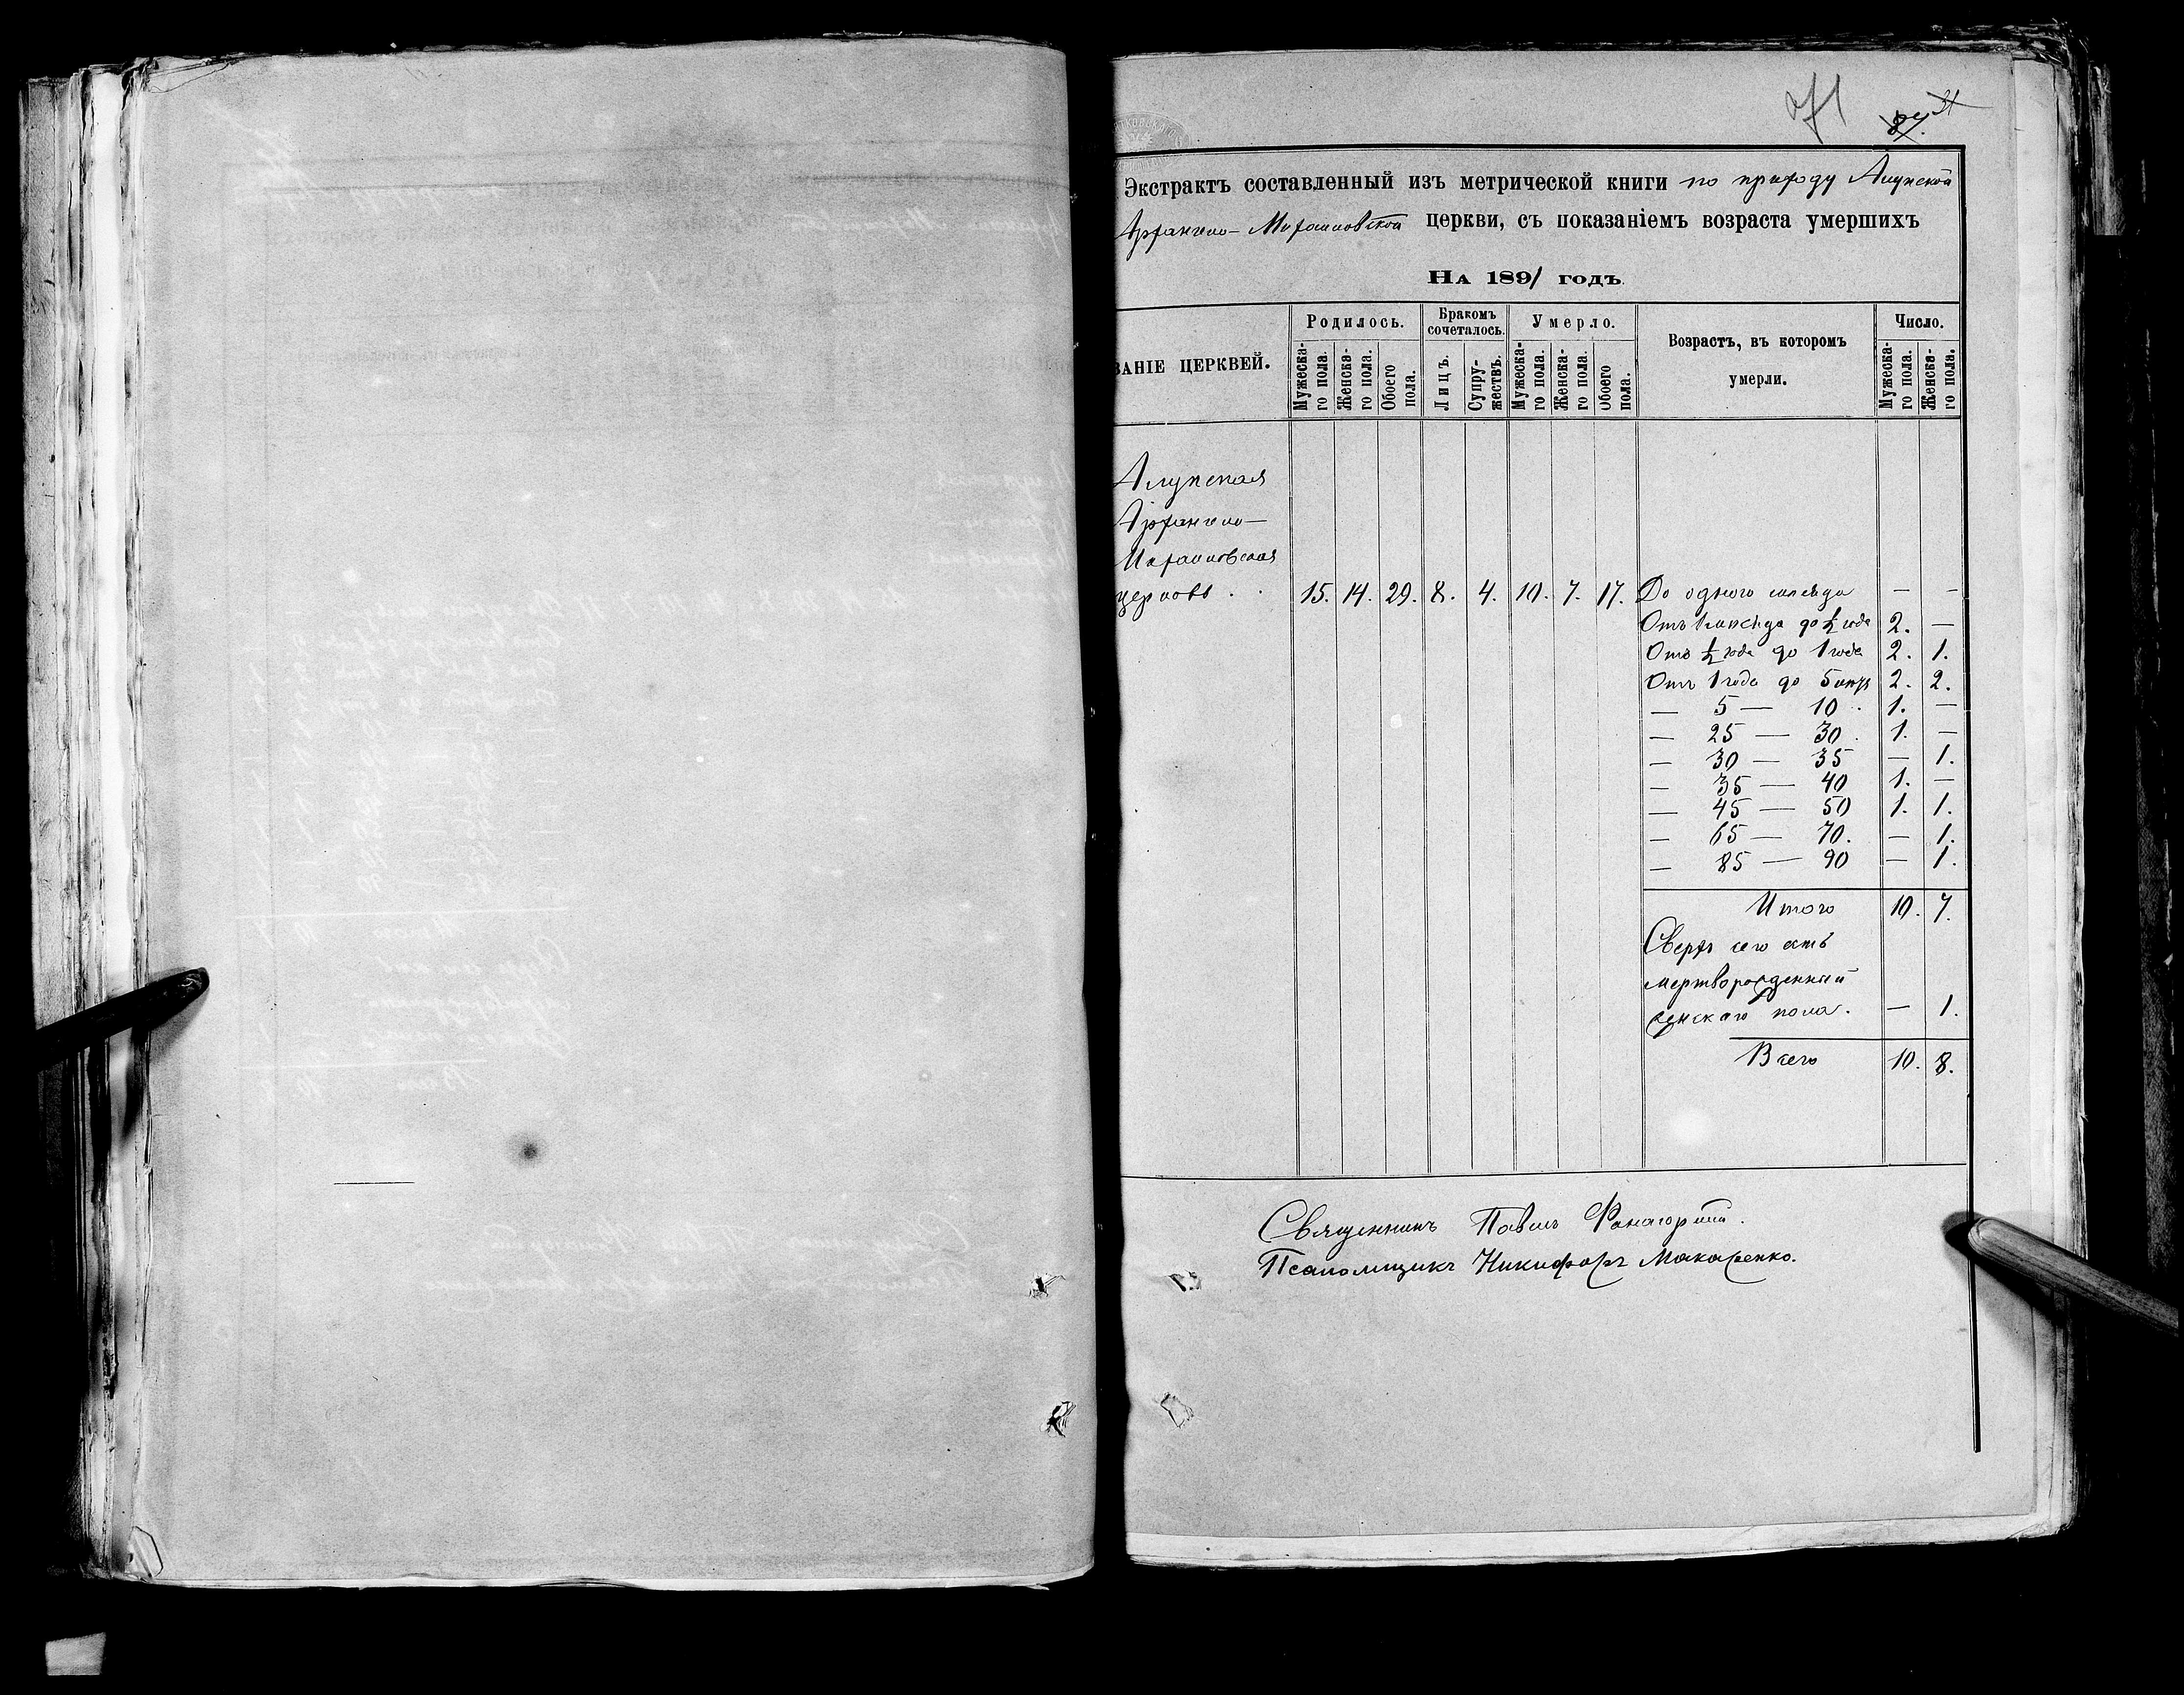 71
87. 31
Экстрактъ составленный изъ метрической книги по приходу Алупской
Архангело-Михаиловской церкви, съ показаніемъ возраста умершихъ
На 1891 годъ.
ВАНІЕ ЦЕРКВЕЙ.
Родилось. Бракомъ сочеталось. Умерло. Возрастъ, въ которомъ умерли. Число.
Мужеска-го пола. Женска-го пола. Обоего пола. Лицъ. Супру-жествъ. Мужеска-го пола. Женска-го пола. Обоего пола. Мужеска-го пола. Женска-го пола.
Алупская
Архангело-
Михаиловская
церковь . . 15. 14. 29. 8. 4. 10. 7. 17. До одного месяца — —
Отъ 1 месяца до ½ года 2. —
Отъ ½ года до 1 года 2. 1.
Отъ 1 года до 5 лѣтъ 2. 2.
— 5 — 10 . 1. —
— 25 — 30 . 1. —
— 30 — 35 — 1.
— 35 — 40 1. —
— 45 — 50 1. 1.
— 65 — 70. — 1.
— 85 — 90 — 1.
Итого 10. 7.
Сверхъ сего есть
мертворожденный
женскаго пола. — 1.
Всего 10. 8.
Священникъ Павелъ
Псаломщикъ Никифоръ Макаренко.